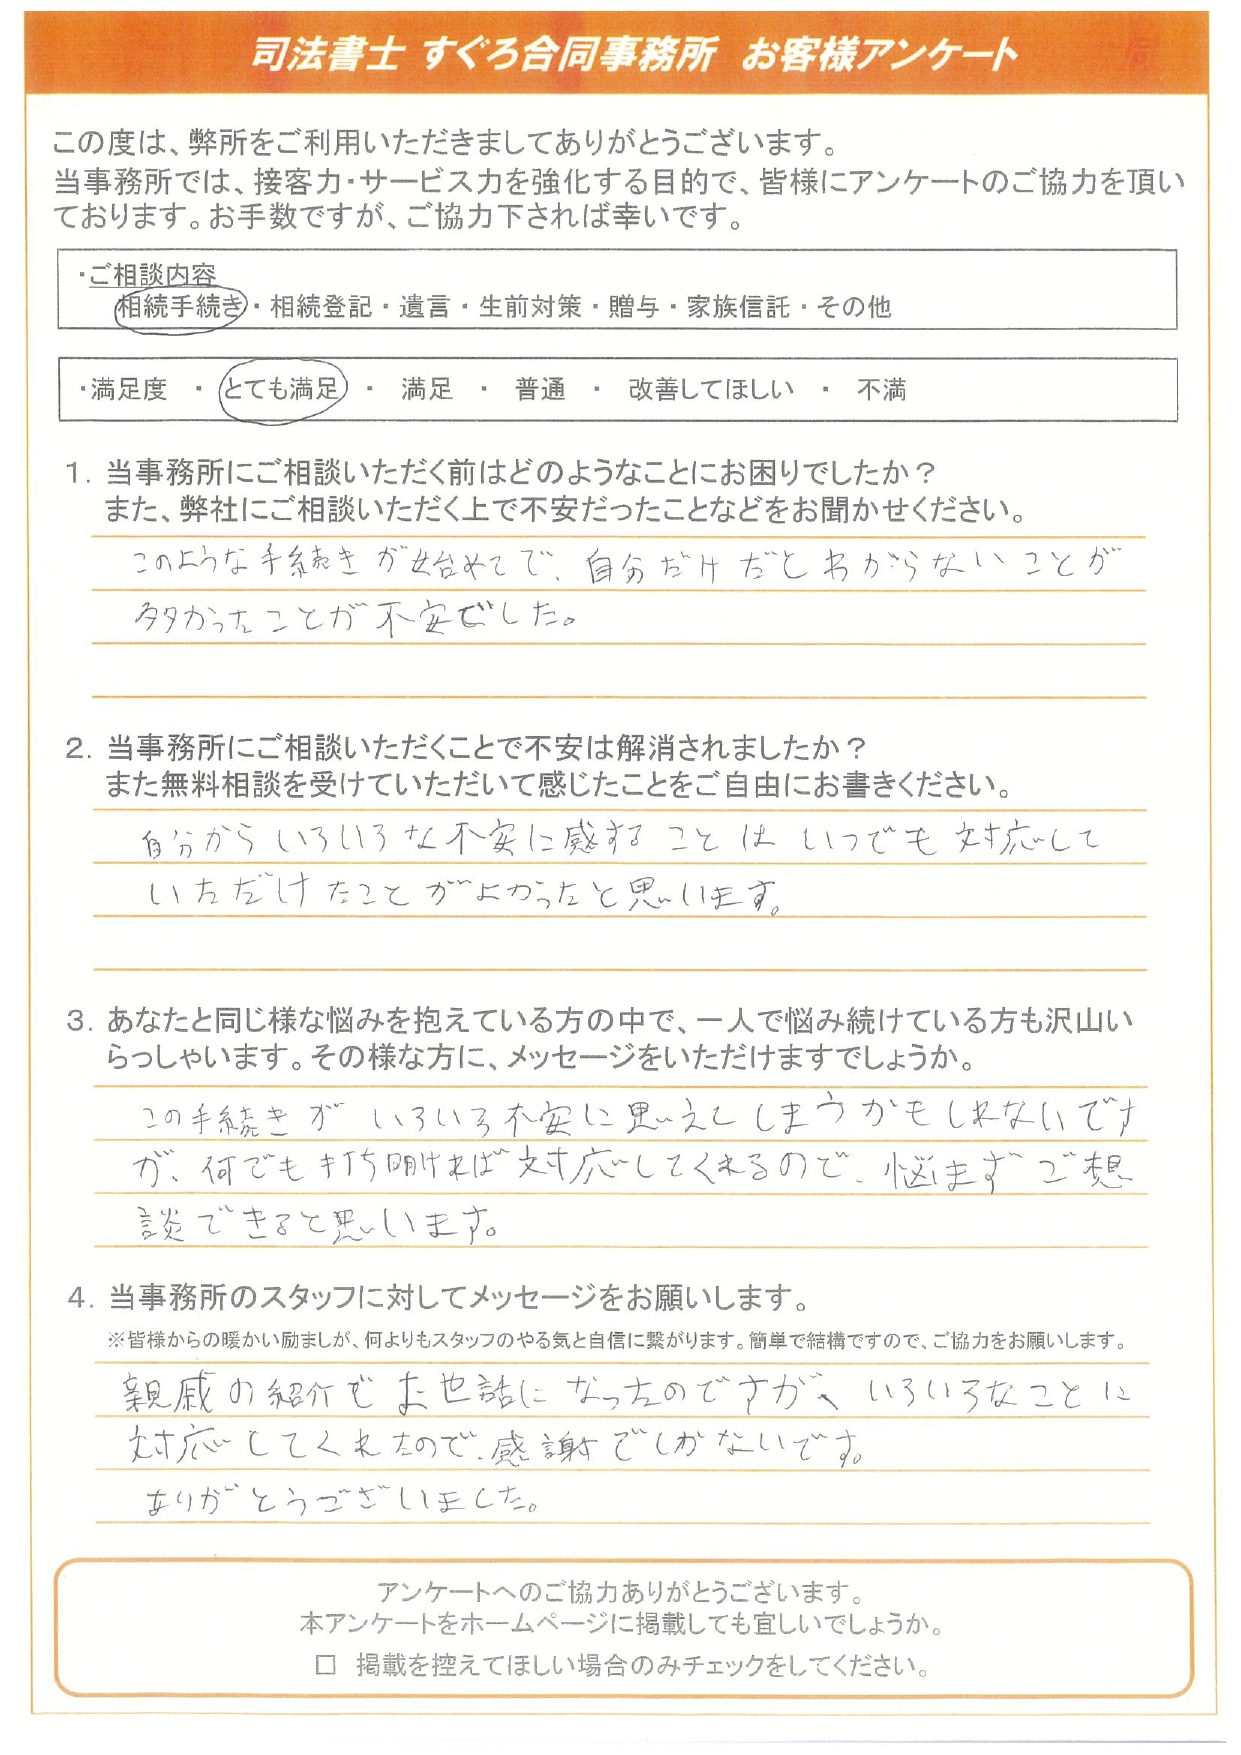 司法書士 すぐろ合同事務所 お客様アンケート
この度は、弊所をご利用いただきましてありがとうございます。
当事務所では、接客力・サービス力を強化する目的で、皆様にアンケートのご協力を頂い
ております。お手数ですが、ご協力下されば幸いです。
・ご相談内容
相続手続き・相続登記・遺言・生前対策・贈与・家族信託・その他
・満足度 ・ とても満足 ・ 満足 ・ 普通 ・ 改善してほしい ・ 不満
1. 当事務所にご相談いただく前はどのようなことにお困りでしたか？
また、弊社にご相談いただく上で不安だったことなどをお聞かせください。
このような手続きが始めてで、自分だけだとわからないことが
多かったことが不安でした。
2. 当事務所にご相談いただくことで不安は解消されましたか？
また無料相談を受けていただいて感じたことをご自由にお書きください。
自分からいろいろな不安に感することはいつでも対応して
いただけたことがよかったと思います。
3. あなたと同じ様な悩みを抱えている方の中で、一人で悩み続けている方も沢山い
らっしゃいます。その様な方に、メッセージをいただけますでしょうか。
この手続きがいろいろ不安に思えてしまうかもしれないです
が、何でも打ち明ければ対応してくれるので、悩まずご想
談できると思います。
4. 当事務所のスタッフに対してメッセージをお願いします。
※皆様からの暖かい励ましが、何よりもスタッフのやる気と自信に繋がります。簡単で結構ですので、ご協力をお願いします。
親戚の紹介でお世話になったのですが、いろいろなことに
対応してくれたので、感謝でしかないです。
ありがとうございました。
アンケートへのご協力ありがとうございます。
本アンケートをホームページに掲載しても宜しいでしょうか。
□ 掲載を控えてほしい場合のみチェックをしてください。